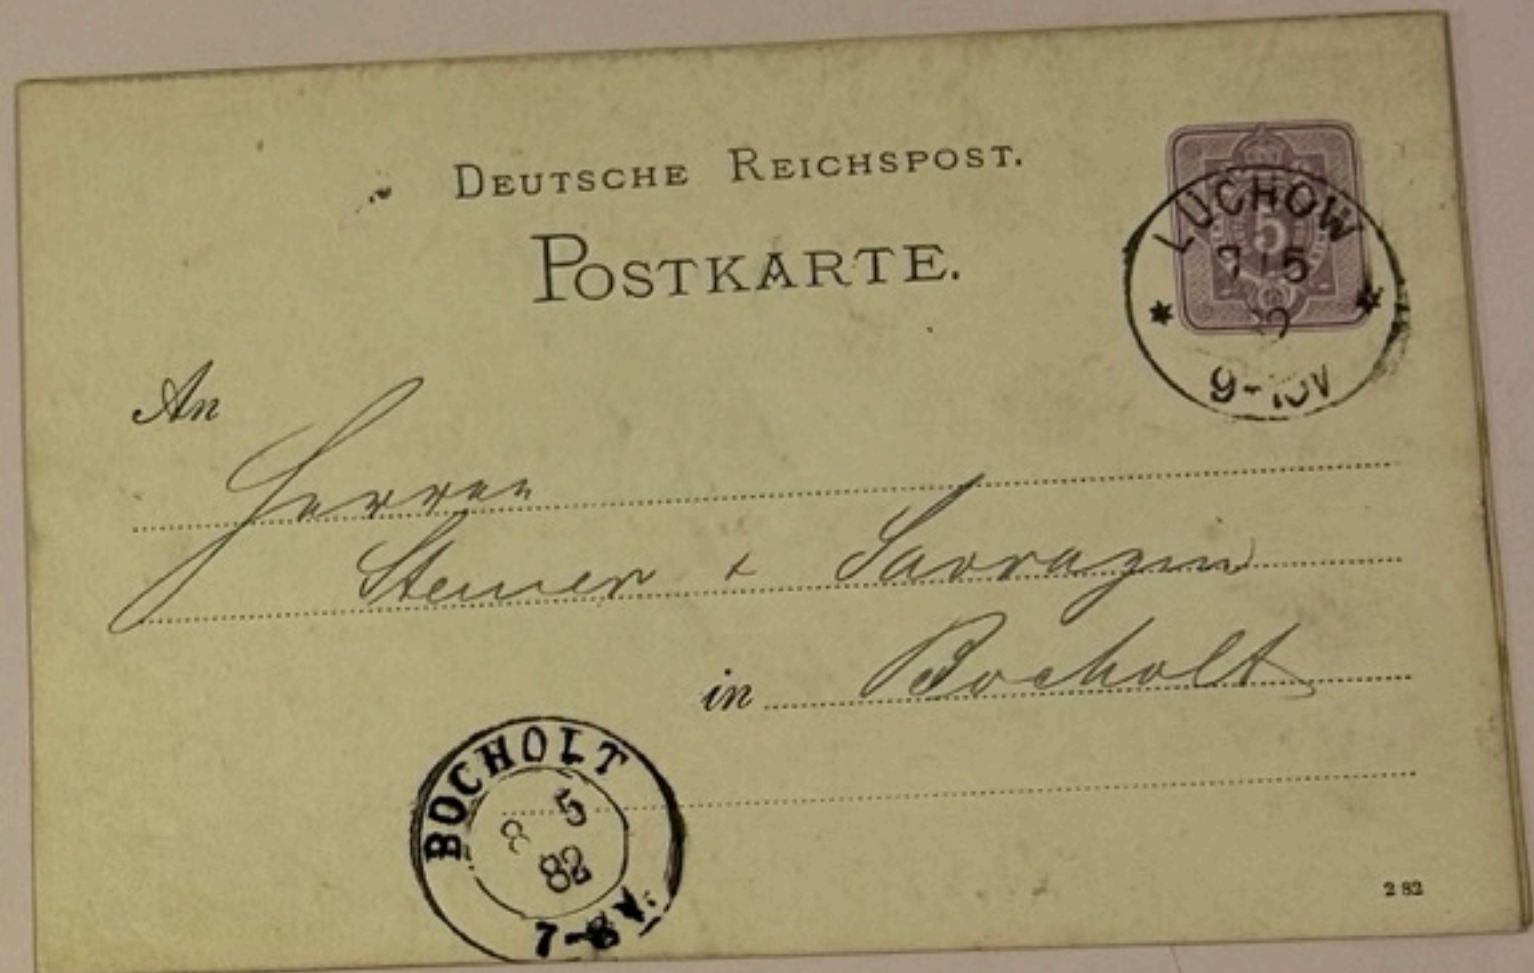 DEUTSCHE REICHSPOST.
POSTKARTE.
5
LUCHOW
7 5
9-10V
An
Herren
Stemer & Sarrazin
in Bocholt
BOCHOLT
8 5
82
7-8 V.
2 82